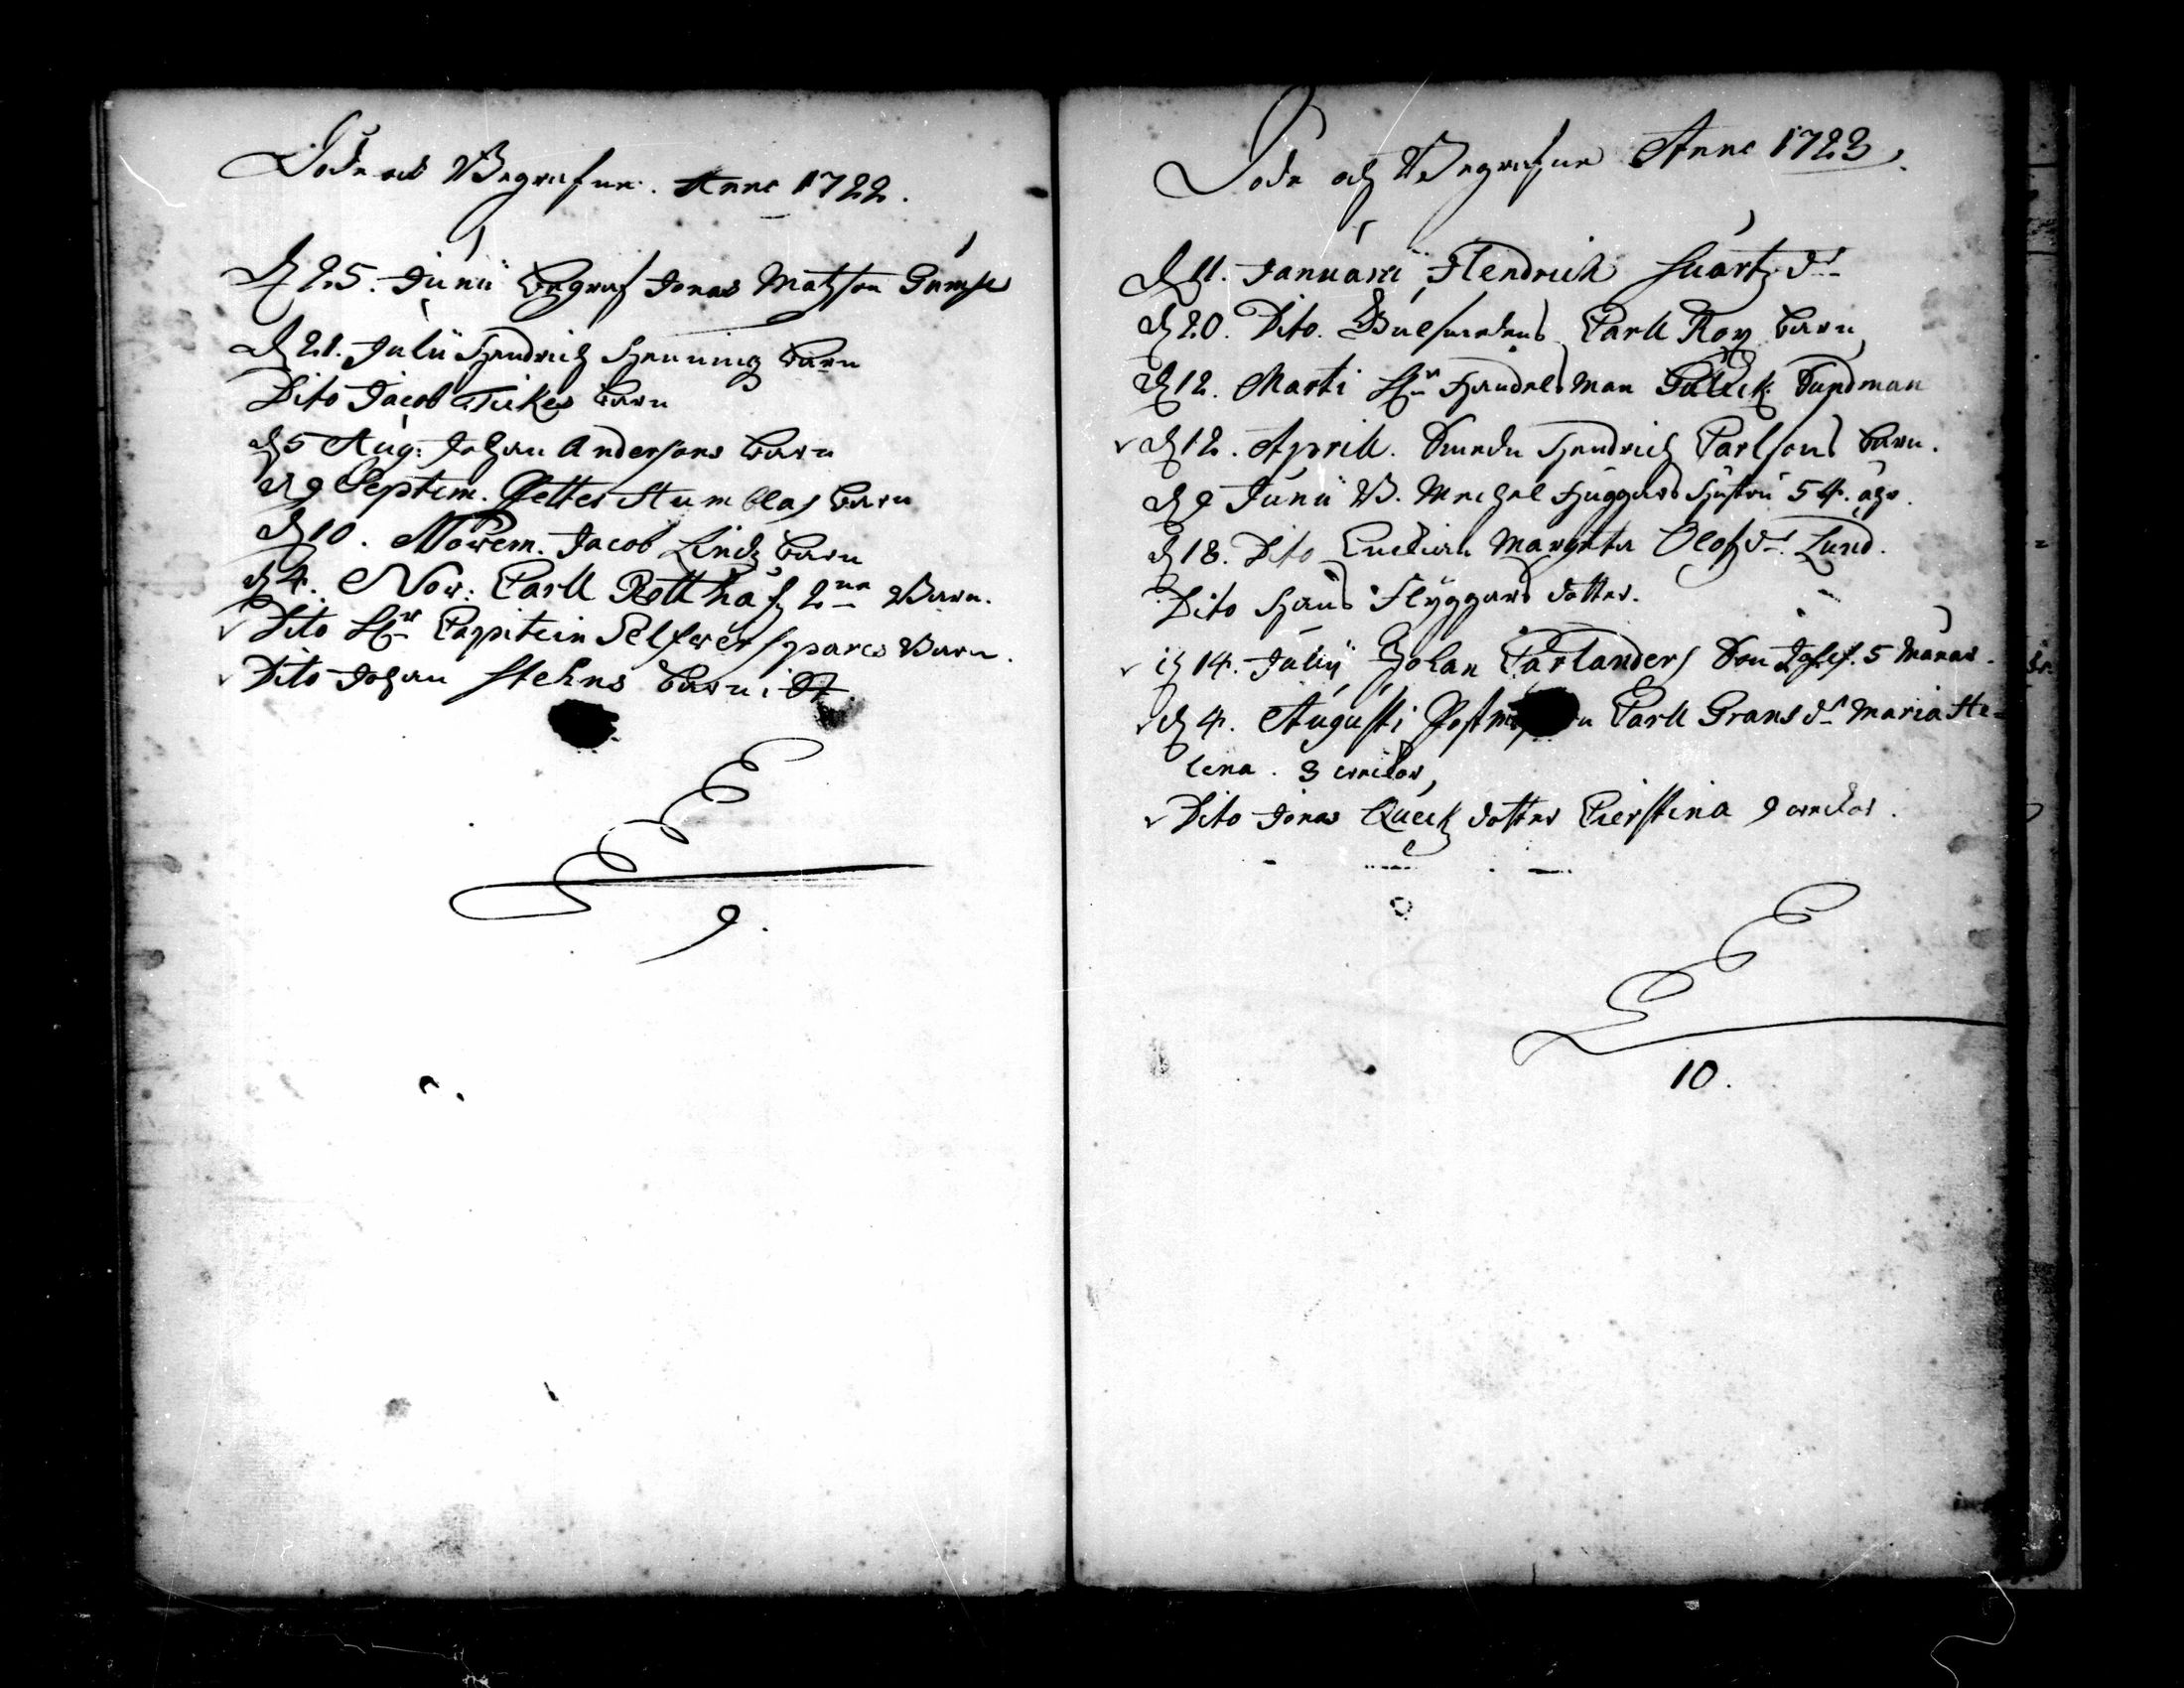 Döde och Begrafne. Anno 1722.
d 25. Junii Begrafs Jonas Matzson
d 21. Julii Hendrich Henning barn
Dito Jacob Tickes barn
d 5 Aug: Johan Andersons barn
d 9 Septem. Petter Stumblas barn
d 10. Novem. Jacob Lindz barn
d 4. Nov: Carll Rotthåfz 2ne Barn.
Dito Hr Capitein Selfwersparcs Barn.
Dito Johan Stehns barn: St
9.
Döde och Begrafne Anno 1723.
d 11. Januarii Hendrich Suartz dr
d 20. Dito. Carll Roy barn
d 12. Marti Hr Handelsman Sundman
d 12. Aprill. Smeden Hendrich Carlsons barn.
d 9 Junii B. Mechel Huggars Hustru 54. åhr.
d 18. Dito Enckian Margeta Olofzdr Lund.
Dito Hans Flyggars dotter.
d 14. Julii Johan Carlanders Son 5 Månar.
d 4. Augusti Carll Grans dr Maria He=
lena. 3 weckor,
Dito Jonas Queck dotter Cierstina 9 weckor.
10.